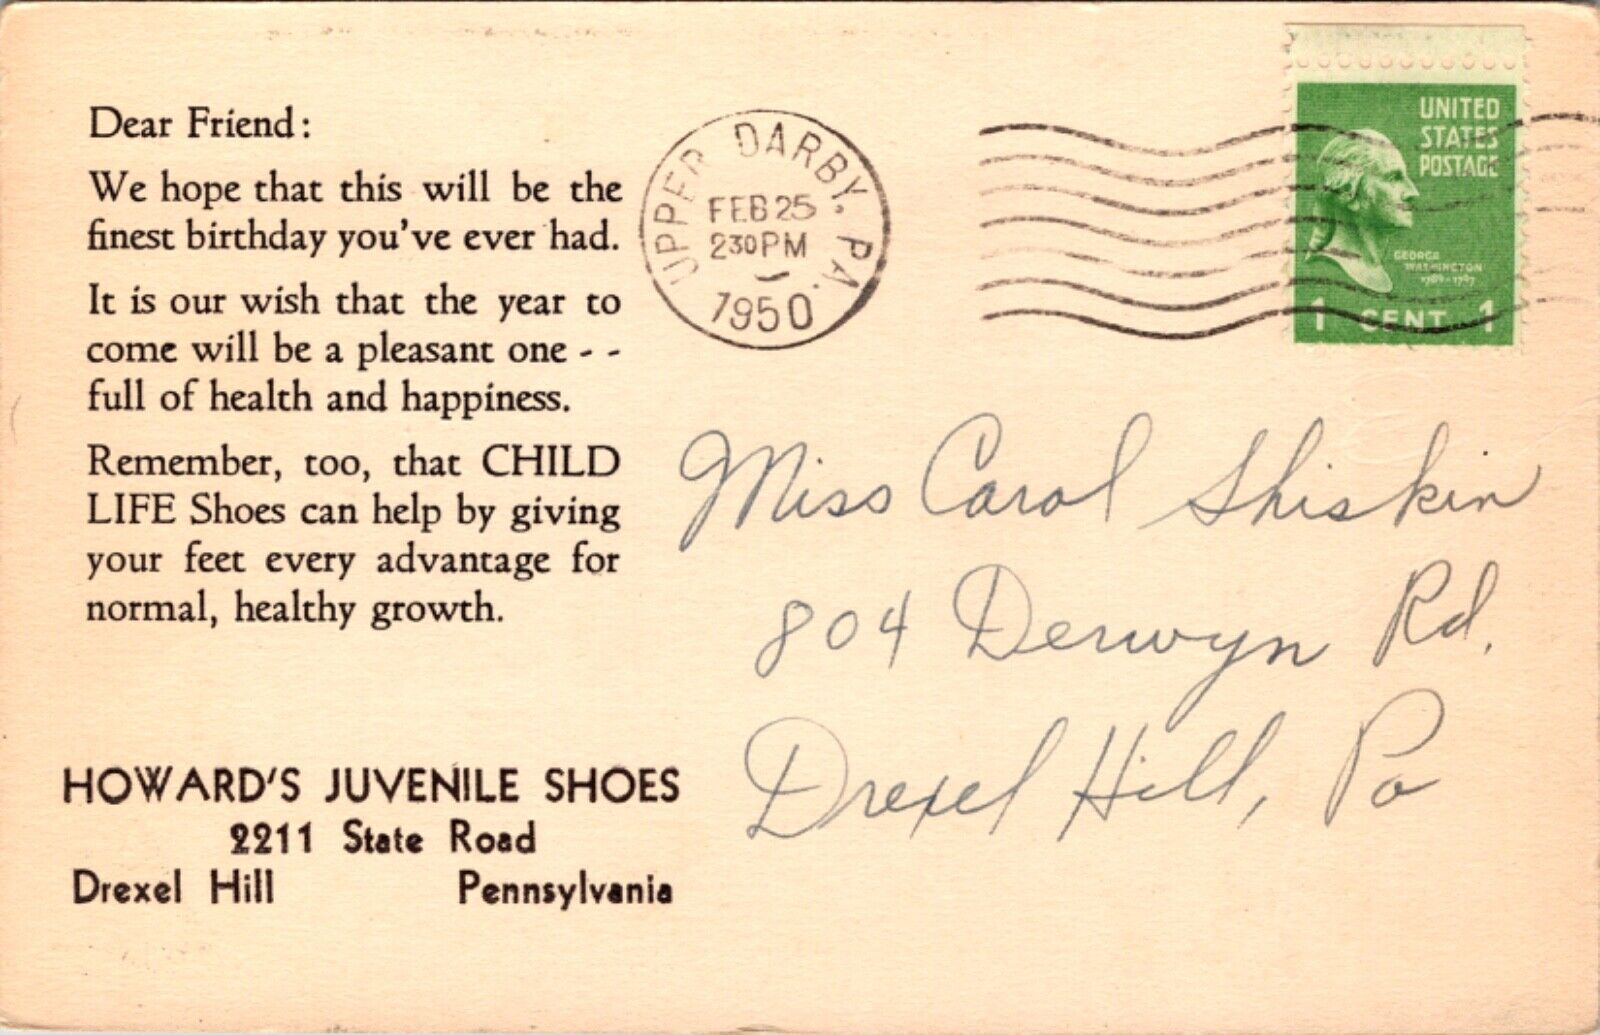 Dear Friend:
We hope that this will be the
finest birthday you've ever had.
It is our wish that the year to
come will be a pleasant one - -
full of health and happiness.
Remember, too, that CHILD
LIFE Shoes can help by giving
your feet every advantage for
normal, healthy growth.
HOWARD'S JUVENILE SHOES
2211 State Road
Drexel Hill Pennsylvania
UPPER DARBY, PA.
FEB 25
230 PM
1950
UNITED
STATES
POSTAGE
GEORGE
WASHINGTON
1789-1797
1 CENT 1
Miss Carol Shiskin
804 Derwyn Rd.
Drexel Hill, Pa